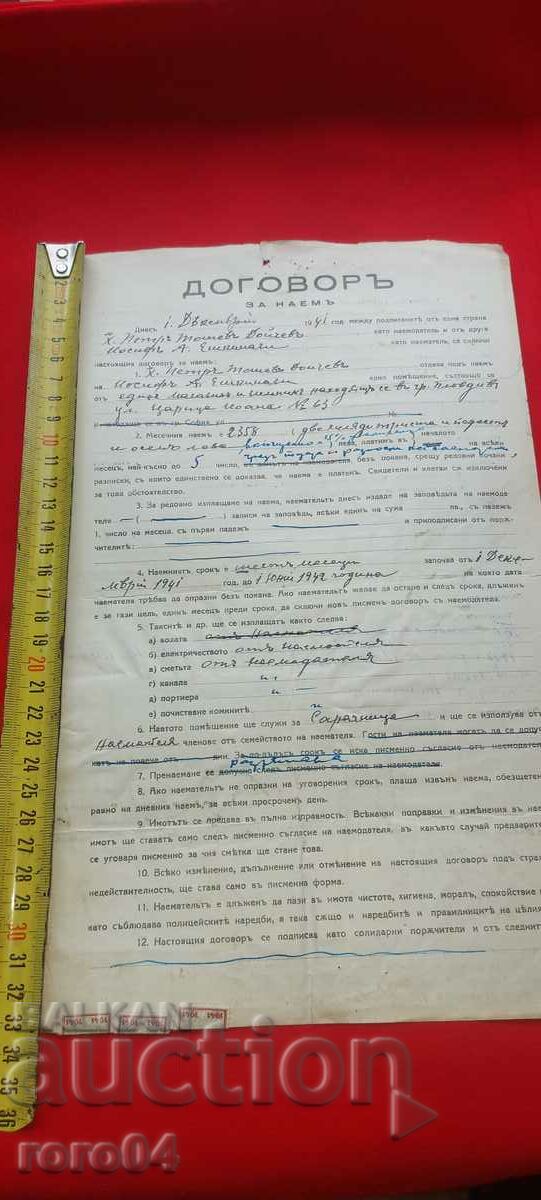 ДОГОВОРЪ
ЗА НАЕМЪ
Днесъ 1. Декемврий 1941 год. между подписанитѣ отъ една страна
Х. Петър Тошев Дойчев като наемодатель и отъ друга
Иосифъ А. Ешкинази като наематель, се сключи
настоящия договоръ за наемъ:
1. Х. Петър Тошев Дойчев отдава подъ наемъ
на Иосифъ А. Ешкинази едно помѣщение, състоящо се
отъ единъ магазинъ находящъ се в гр. Пловдивъ
ул. Царица Иоана № 63
2. Месечния наемъ е 2358 (две хиляди триста и
и осемъ лева) лева, платимъ въ началото на всѣки
месецъ, най-късно до 5 число, безъ покана, срещу редовни кочани
разписки, съ които единствено се доказва, че наема е платенъ. Свидетели и клетви сѫ изключени
за това обстоятелство.
3. За редовно изплащане на наема, наемательтъ днесъ издаде на заповѣдьта на наемода-
теля — ( ) записи на заповѣдь, всѣки единъ на сума лв., съ падежъ
1. число на месеца, съ първи падежъ и приподписани отъ порѫ-
чителитѣ:
4. Наемниятъ срокъ е шесть месеца започва отъ 1 Деке-
мврий 1941 год. до 1 Юний 1942 година на която дата
наемателя трѣбва да опразни безъ покана. Ако наемательтъ желае да остане и следъ срока, длъженъ
е за тази цель, единъ месецъ преди срока, да сключи новъ писменъ договоръ съ наемодателя.
5. Таксите и др. ще се изплащатъ както следва:
а) водата отъ Наемателя
б) електричеството отъ наемателя
в) сметьта отъ наемодателя
г) канала "
д) портиера " —
е) почистване коминитѣ "
6. Наетото помѣщение ще служи за Сарачница и ще се използува отъ
Наемателя членове отъ семейството на наемателя. Гости на наемателя могатъ да се допу-
катъ на повече отъ дни. За по-дълъгъ срокъ се иска писмено съгласие отъ наемодателя.
7. Пренаемане се должно следъ писмено съгласие на наемодателя.
8. Ако наемательтъ не опразни на уговорения срокъ, плаща извънъ наема, обезщете-
равно на дневния наемъ, за всѣки просроченъ день.
9. Имотътъ се предава въ пълна изправность. Всѣкакви поправки и изменения въ нае-
имотъ ще ставатъ само следъ писмено съгласие на наемодателя, въ какъвто случай предварите-
се уговаря писмено за чия сметка ще стане това.
10. Всѣко изменение, допълнение или отменение на настоящия договоръ подъ стра-
недействителность, ще става само въ писмена форма.
11. Наемательтъ е длъженъ да пази въ имота чистота, хигиена, моралъ, спокойствие
като съблюдава полицейскитѣ наредби, а така сѫщо и наредбитѣ и правилницитѣ на цѣлия
12. Настоящия договоръ се подписва като солидарни порѫчители и отъ следнитѣ
1941 1941 1941 1941 1941 1941
БАЛКАН
auction
roro04
2 3 4 5 6 7 8 9 10 11 12 13 14 15 16 17 18 19 20 21 22 23 24 25 26 27 28 29 30 31 32 33 34 35 36